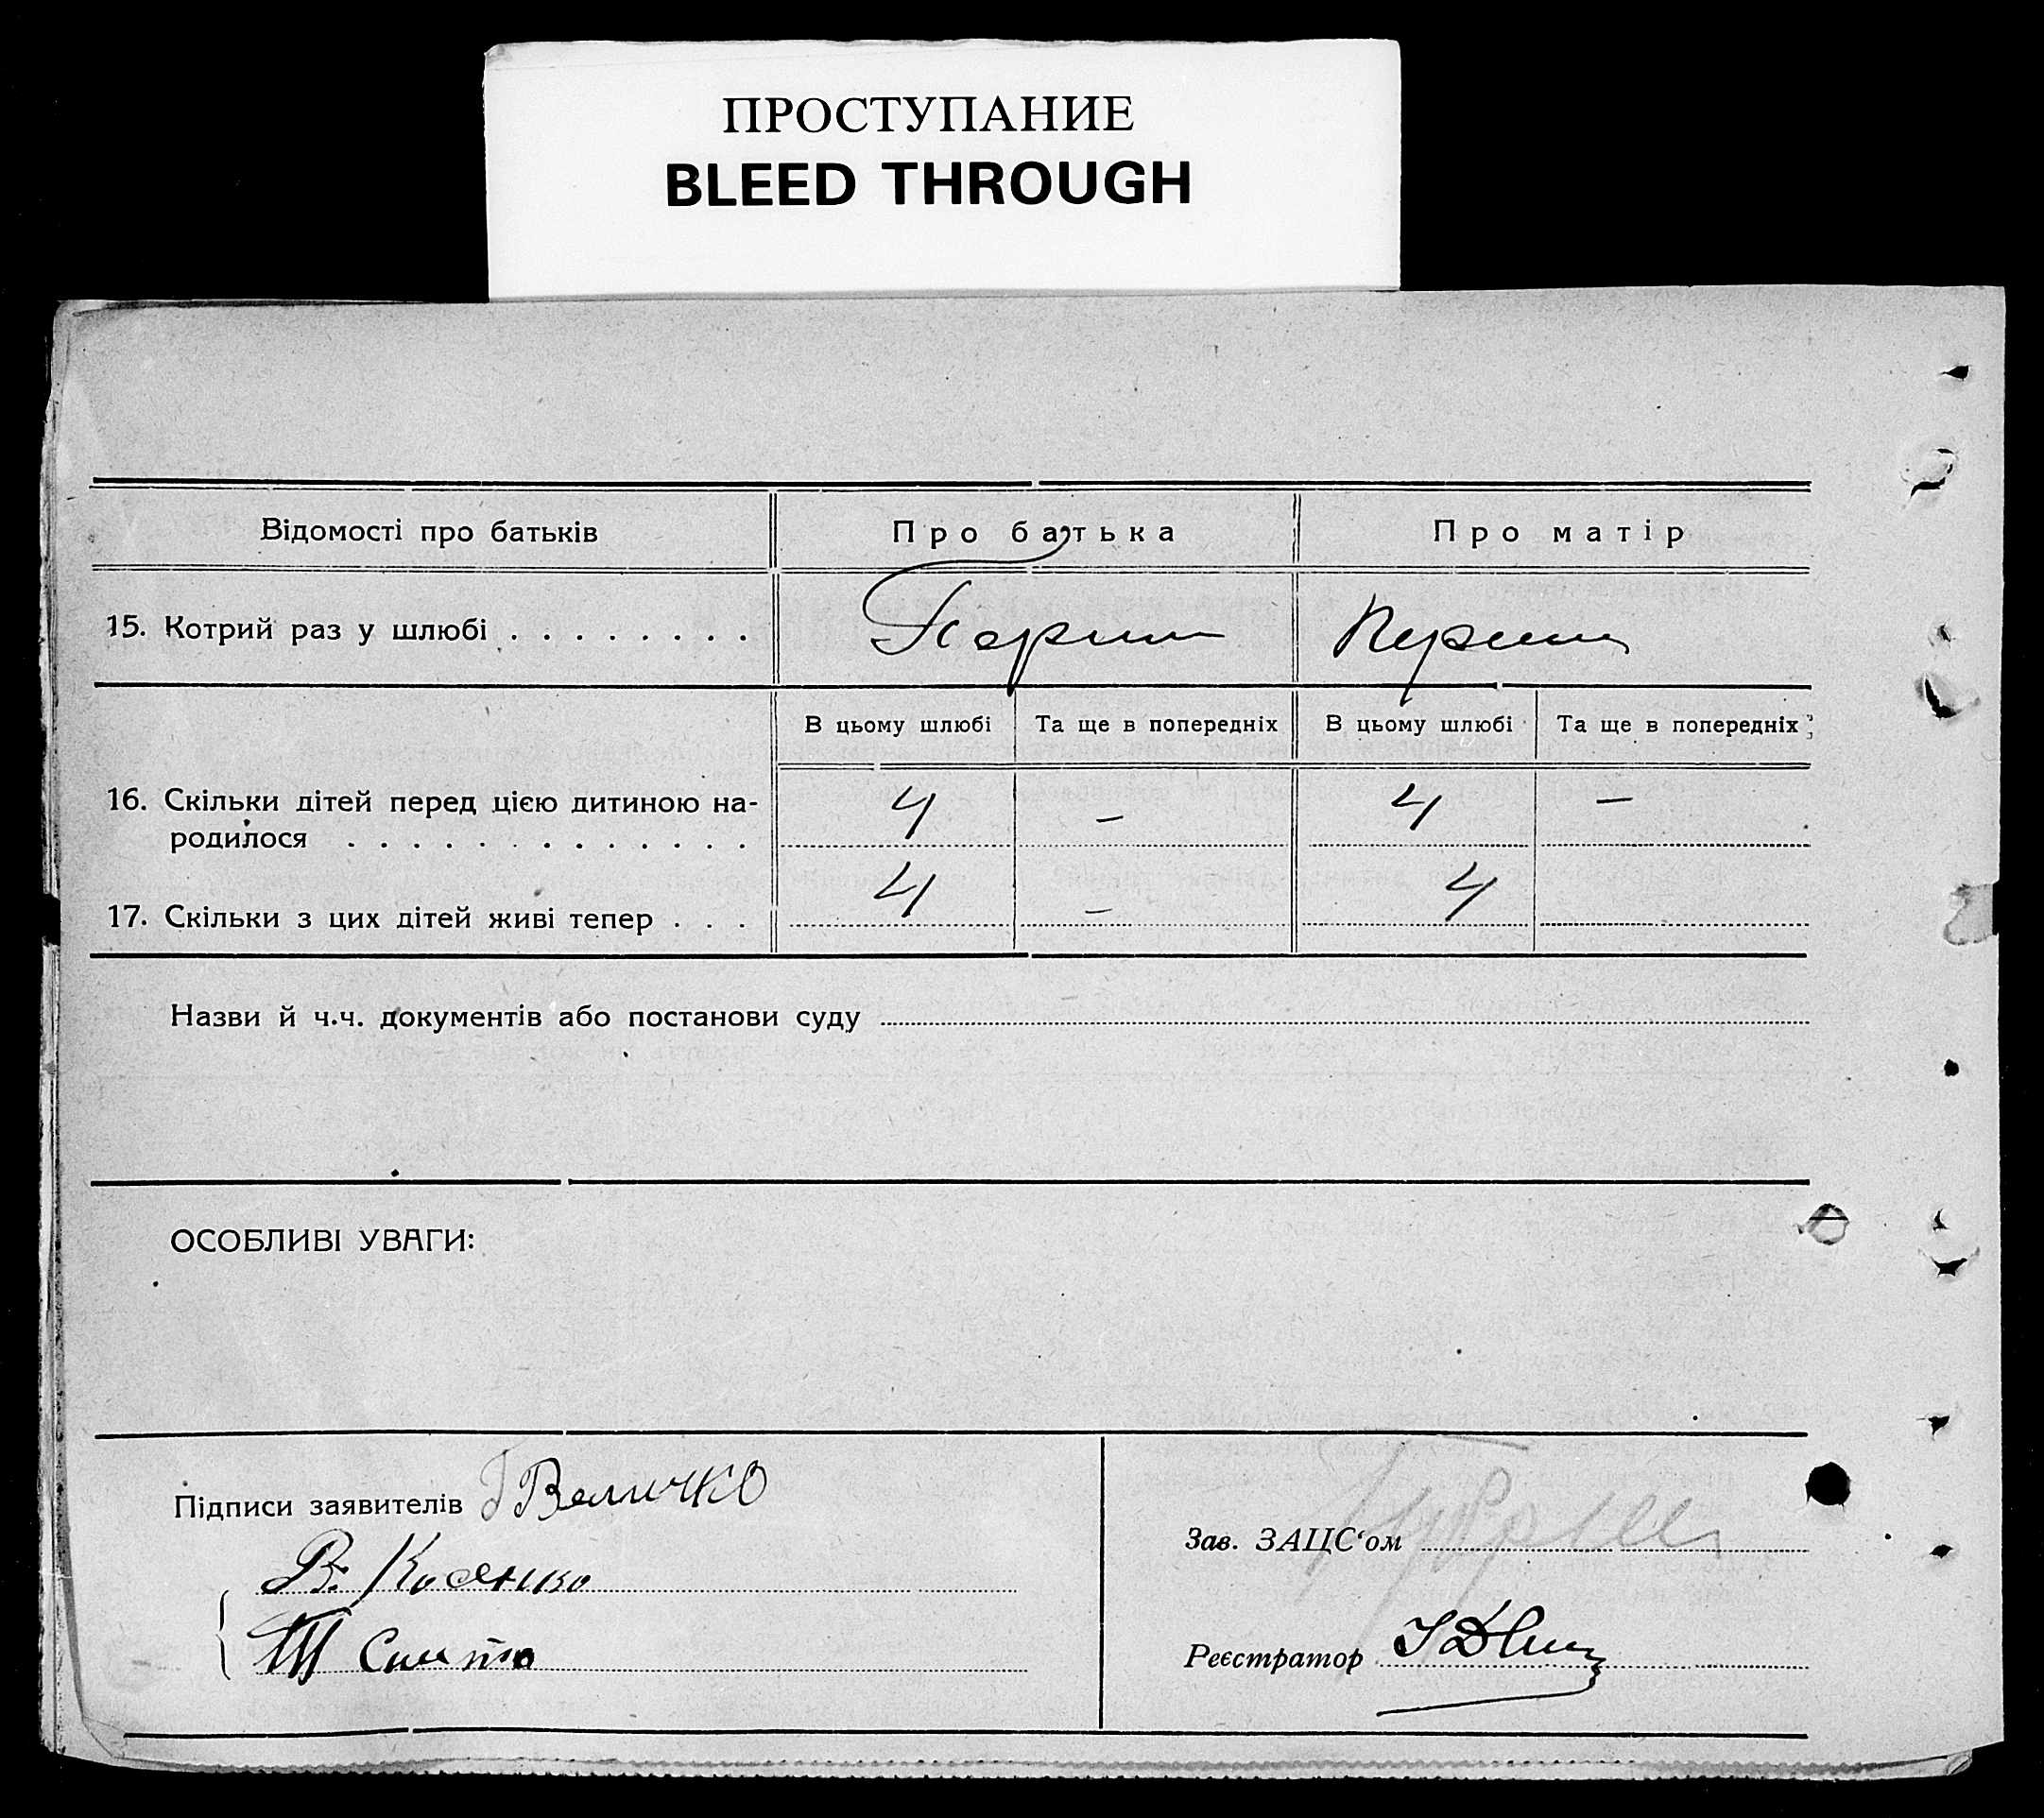 ПРОСТУПАНИЕ
BLEED THROUGH
Відомості про батьків
Про батька
Про матір
15. Котрий раз у шлюбі . . . . . . . .
Перший
Перший
В цьому шлюбі
Та ще в попередніх
В цьому шлюбі
Та ще в попередніх
16. Скільки дітей перед цією дитиною на-
родилося . . . . . . . . . . . .
4
–
4
–
17. Скільки з цих дітей живі тепер . . .
4
–
4
Назви й ч.ч. документів або постанови суду
ОСОБЛИВІ УВАГИ:
Підписи заявителів Величко
В. Косенко
Зав. ЗАЦС‘ом
Реєстратор